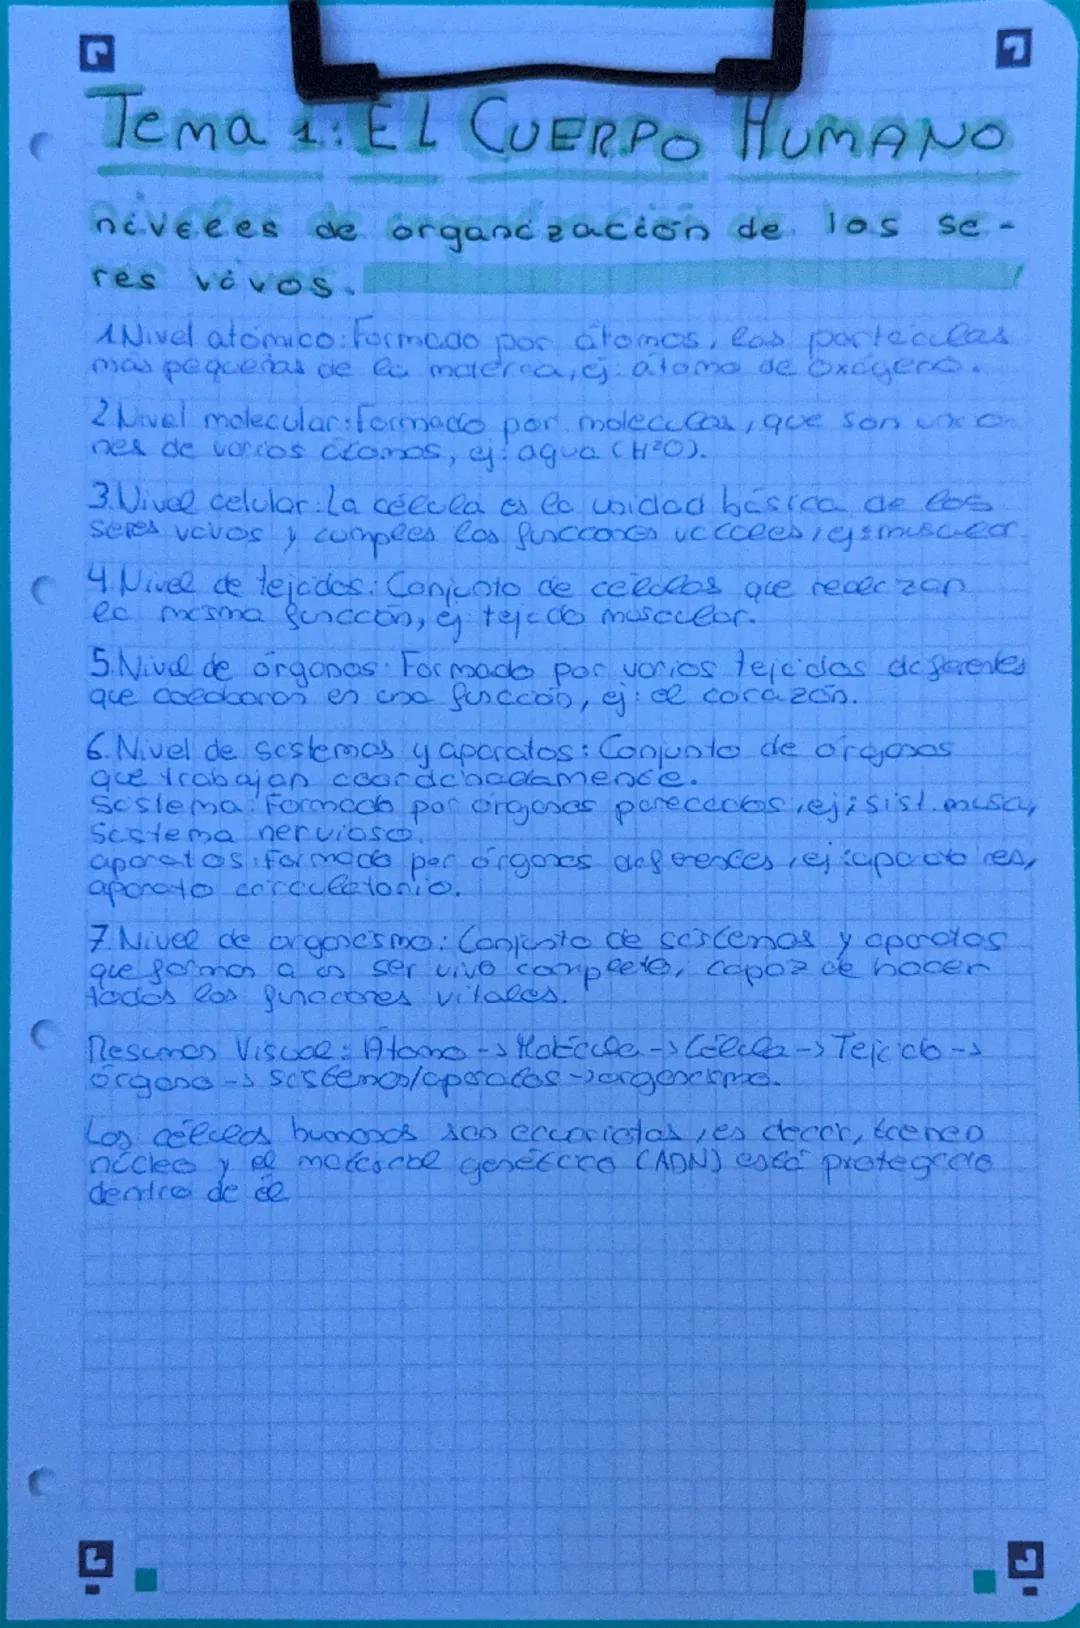 Tema 1: EL CUERPO HUMANO
niveles de organización de los se-
res vivos.
1 Nivel atómico: Formado por átomos, las partículas
más pequeñas de la materia, ej: átomo de oxígeno.
2 Nivel molecular: Formado por moleculas, que son unio-
nes de varios átomos, ej: agua (H²O).
3. Nivel celular: La célula es la unidad básica de los
seres vivos y cumples las funciones vitales, ej: muscular
4. Nivel de tejidos: Conjunto de células que realizan
la misma función, ej: tejido muscular.
5. Nivel de órganos: Formado por varios tejidos diferentes
que colaboran en una función, ej: el corazón.
6. Nivel de sistemas y aparatos: Conjunto de órganos
que trabajan coordinadamente.
Sistema: Formado por órganos parecidos, ej: sist. musu,
Sistema nervioso.
aparatos: Formado por órganos diferentes, ej: aparato res,
aparato circulatorio.
7. Nivel de organismo: Conjunto de sistemas y aparatos
que forman a un ser vivo completo, capaz de hacer
todas las funciones vitales.
Resumen Visual: Atomo -> Molécula -> Célula -> Tejido ->
órgano -> sistemas/aparatos -> organismo.
Las células humanas son eucariotas, es decir, tienen
núcleo y el material genético (ADN) está protegido
dentro de él